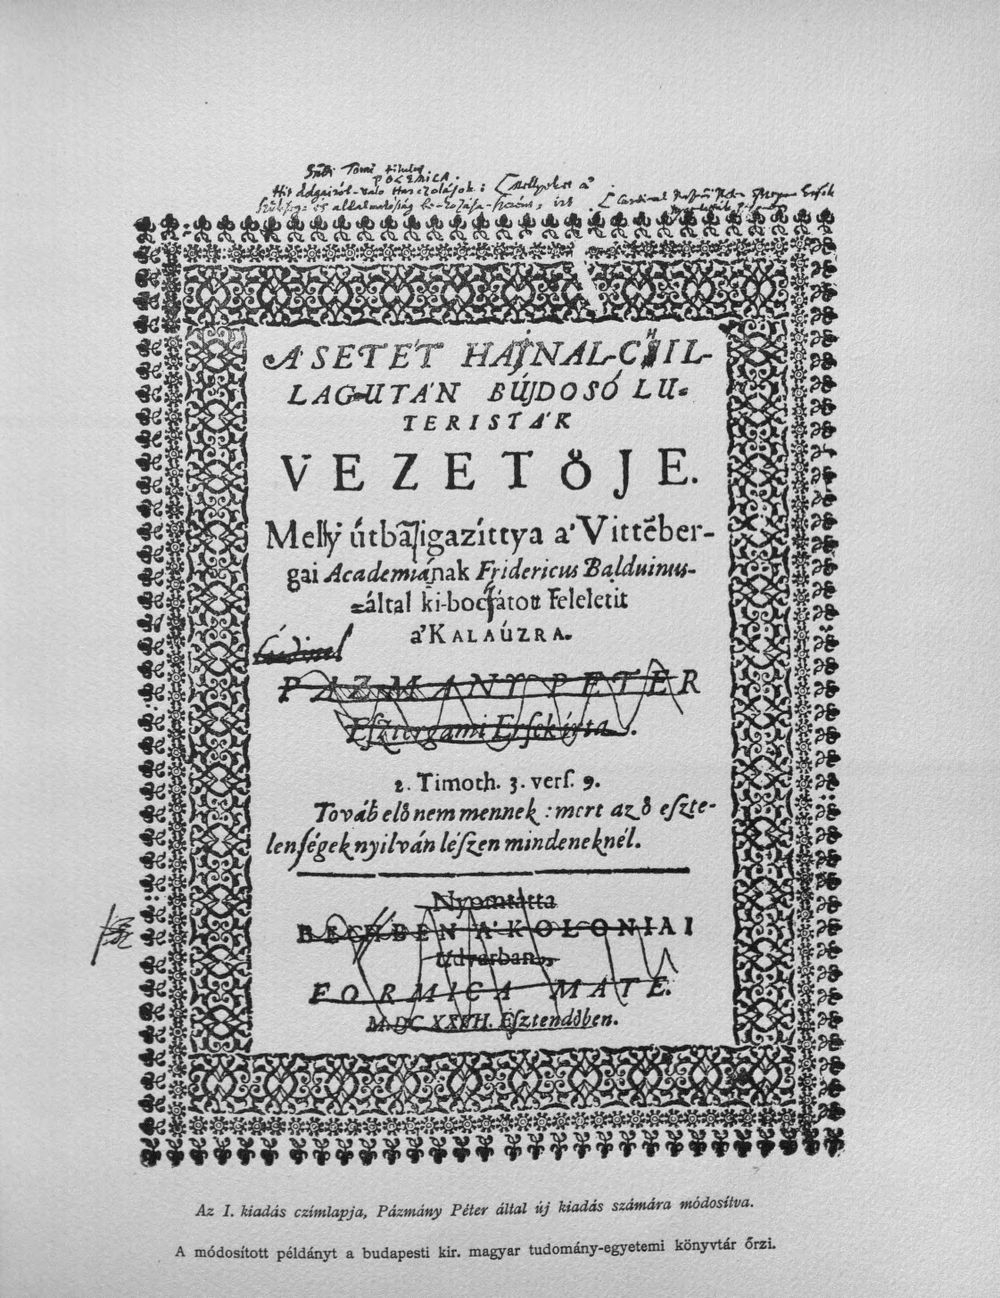 POLEMICA.
A' SETÉT HAJNAL-CSIL-
LAG-UTÁN BÚJDOSÓ LU-
TERISTÁK
VEZETŐJE.
Melly útba igazíttya a' Vittēber-
gai Academiának Fridericus Balduinus-
által ki-bocsátott Feleletit
a' KALAÚZRA.
PAZMANY PETER
Esztergami Ersek írta.
2. Timoth. 3. vers. 9.
Továb elő nem mennek: mert az ő eszte-
lenségek nyilván lészen mindeneknél.
Nyomtatta
BECHBEN A' KOLONIAI
Udvarban,
FORMICA MATE.
M.DC XXVII. Esztendőben.
Az I. kiadás czímlapja, Pázmány Péter által új kiadás számára módosítva.
A módosított példányt a budapesti kir. magyar tudomány-egyetemi könyvtár őrzi.